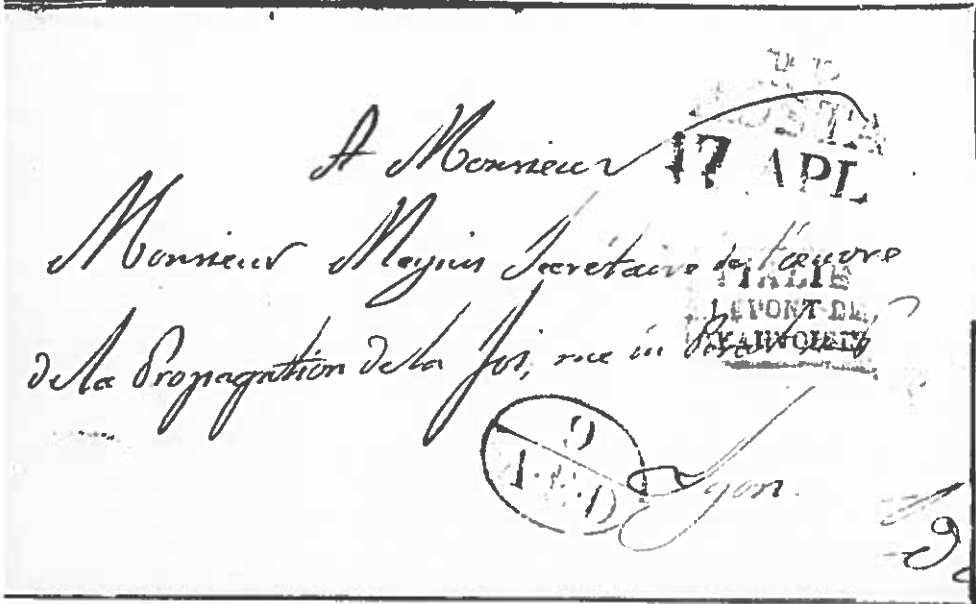 AOSTA
17 APL
A Monsieur
Monsieur Meynis Secrétaire de l'œuvre
ITALIE
LE PONT DE
BEAUVOISIN
de la Propagation de la foi, rue du
Lyon.
9